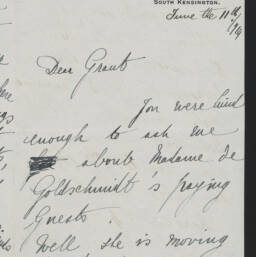 SOUTH KENSINGTON.
June the 11th
/14
Dear Grant
You were kind
enough to ask me
about Madame de
Goldschmidt's paying
Guests.
Well, she is moving